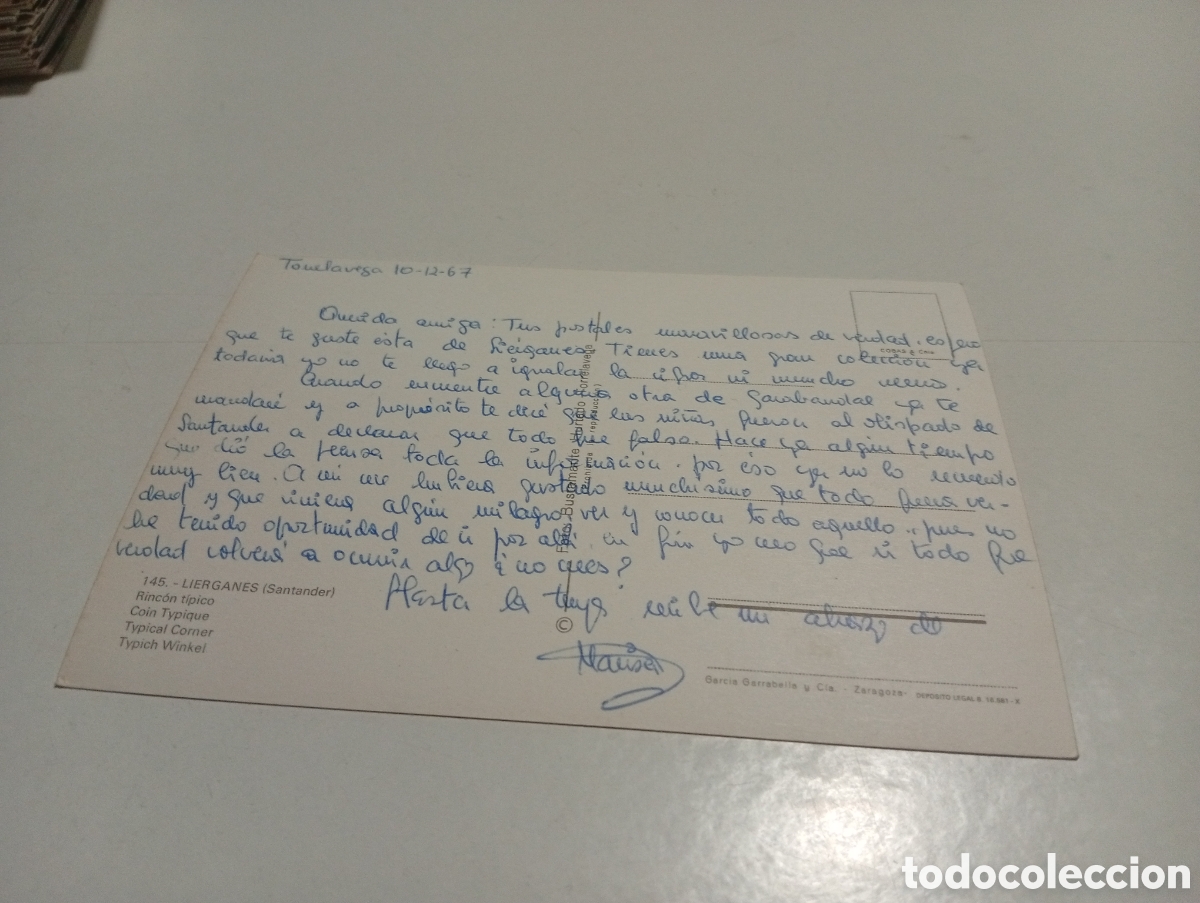 Torrelavega 10-12-67
Querida amiga: Tus postales maravillosas de verdad. espero
que te guste ésta de Liérganes. Tienes una gran colección ya
todavia yo no te llego a igualar la cifra ni mucho menos.
Cuando encuentre alguna otra de Garabandal ya te
mandaré y a propósito te diré que las niñas fueron al obispado de
Santander a declarar que todo fue falso. Hace ya algún tiempo
que dió la prensa toda la información. por éso ya no lo recuerdo
muy bien. A mi me hubiera gustado muchisimo que todo fuera ver-
dad y que viniera algún milagro ver y conocer todo aquello, pues no
he tenido oportunidad de ir por alli. en fin yo creo que si todo fue
verdad volverá a ocurrir algo ¿no crees?
Hasta la tuya recibe un abrazo de
Marisa
145. - LIERGANES (Santander)
Rincón típico
Coin Typique
Typical Corner
Typich Winkel
©
Foto: Bustamante Hurtado Torrelavega
García Garrabella y Cía. - Zaragoza- DEPOSITO LEGAL B. 16.561 - X
todocoleccion